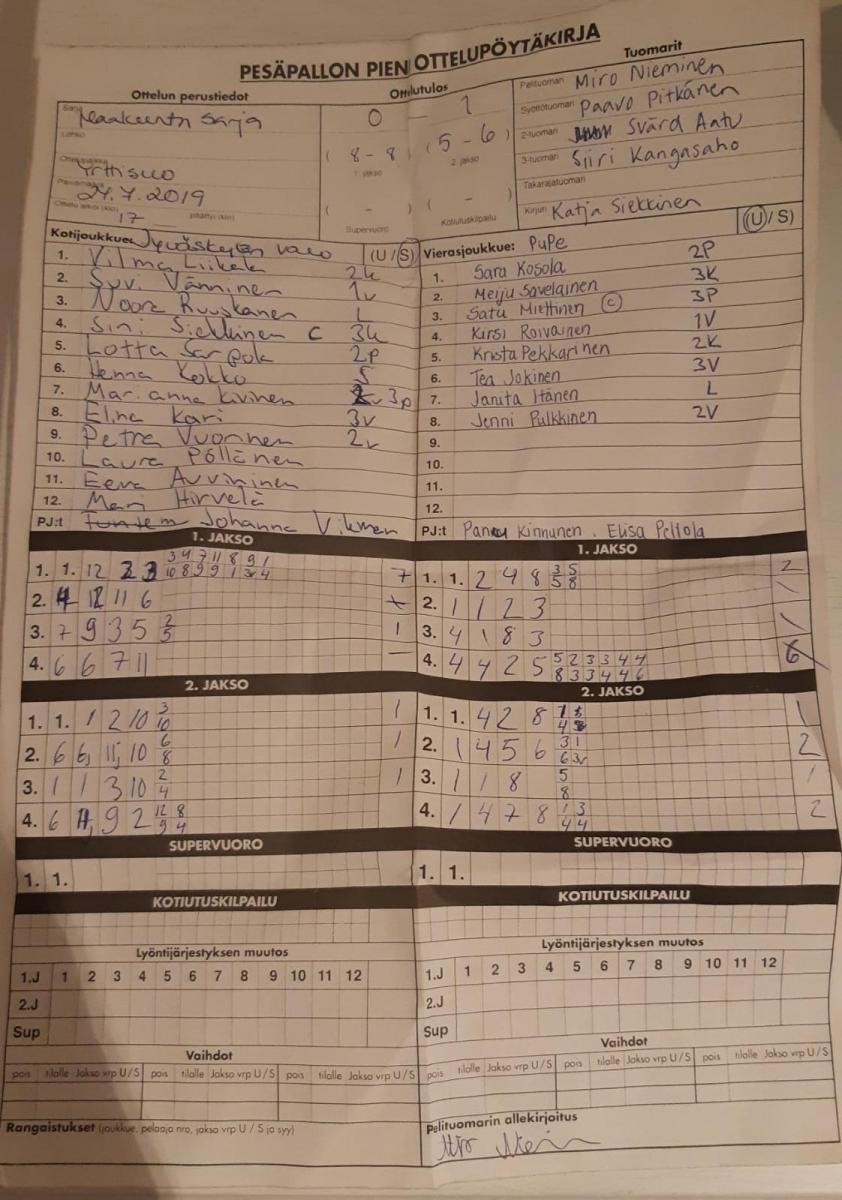 PESÄPALLON PIEN OTTELUPÖYTÄKIRJA
Ottelun perustiedot
Ottelutulos
Tuomarit
Sarja
Lohko
Yrttisuo
24.7.2019
17
0 - 1
(8-8) (5-6)
1. jakso 2. jakso
( - ) ( - )
Supervuoro Kotiutuskilpailu
Pelituomari Miro Nieminen
Syöttötuomari Paavo Pitkänen
2-tuomari Svärd Aatu
3-tuomari Siiri Kangasaho
Takarajatuomari
Kirjuri Katja Siekkinen
Kotijoukkue: (U/S)
1. Vilma 2k
2. Suvi Vänninen 1v
3. Noora Ruuskanen L
4. Sini Siekkinen C 3k
5. Lotta Sarpola 2p
6. Henna Kokko S
7. Marianna Kivinen 3p
8. Elina Kari 3v
9. Petra Vuorinen 2v
10. Laura Pöllänen
11. Eeva Auvininen
12. Meri Hirvelä
PJ:t Johanna Vikman
Vierasjoukkue: PuPe (U/S)
1. Sara Kosola 2P
2. Meiju Savelainen 3K
3. Satu Miettinen C 3P
4. Kirsi Roivainen 1V
5. Krista Pekkarinen 2K
6. Tea Jokinen 3V
7. Janita Itänen L
8. Jenni Pulkkinen 2V
9.
10.
11.
12.
PJ:t Kinnunen. Elisa Peltola
1. JAKSO
1. 1. 12 3 4 7 11 8 9 1 7
2. 11 6
3. 7 9 3 5 2 5 1
4. 6 6 7 11 —
2. JAKSO
1. 1. 1 2 10 3 10 1
2. 6 6, 11, 10 6 8 1
3. 1 1 3 10 2 4 1
4. 6 9 2 12 8 9 4
SUPERVUORO
1. 1.
KOTIUTUSKILPAILU
Lyöntijärjestyksen muutos
1.J 1 2 3 4 5 6 7 8 9 10 11 12
2.J
Sup
Vaihdot
pois tilalle Jakso vrp U/S pois tilalle Jakso vrp U/S pois tilalle Jakso vrp U/S
Rangaistukset (joukkue, pelaaja nro, jakso vrp U / S ja syy)
1. JAKSO
1. 1. 2 4 8 3 5 5 8 2
2. 1 1 2 3
3. 4 1 8 3
4. 4 4 2 5 5 2 3 3 4 4 8 3 3 4 4 6 6
2. JAKSO
1. 1. 4 2 8 1
2. 1 4 5 6 3 1 2
3. 1 1 8 5 8 1
4. 1 4 7 8 1 3 4 4 2
SUPERVUORO
1. 1.
KOTIUTUSKILPAILU
Lyöntijärjestyksen muutos
1.J 1 2 3 4 5 6 7 8 9 10 11 12
2.J
Sup
Vaihdot
pois tilalle Jakso vrp U/S pois tilalle Jakso vrp U/S pois tilalle Jakso vrp U/S
Pelituomarin allekirjoitus